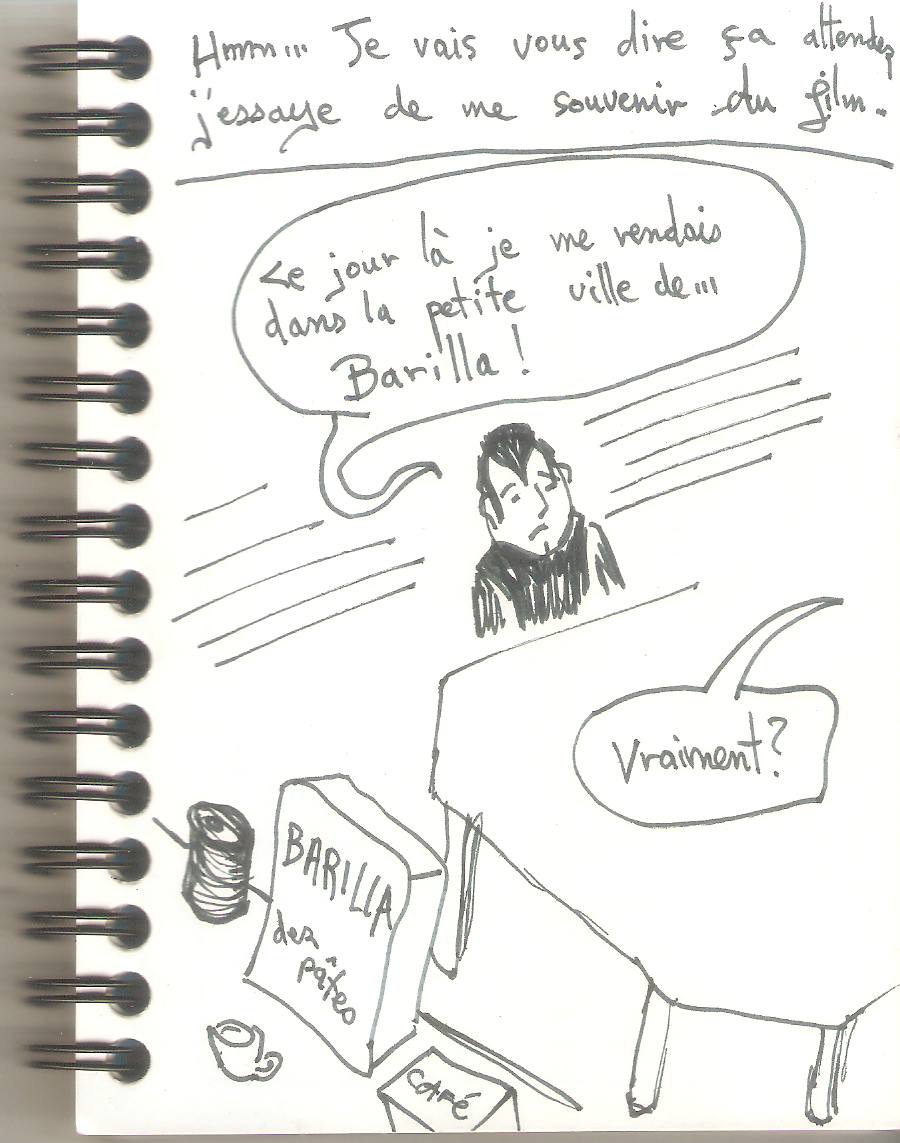 Hmm... Je vais vous dire ça attendez
j'essaye de me souvenir du film.
Ce jour là je me rendais
dans la petite ville de...
Barilla !
Vraiment?
BARILLA
des
pâtes
CAFÉ